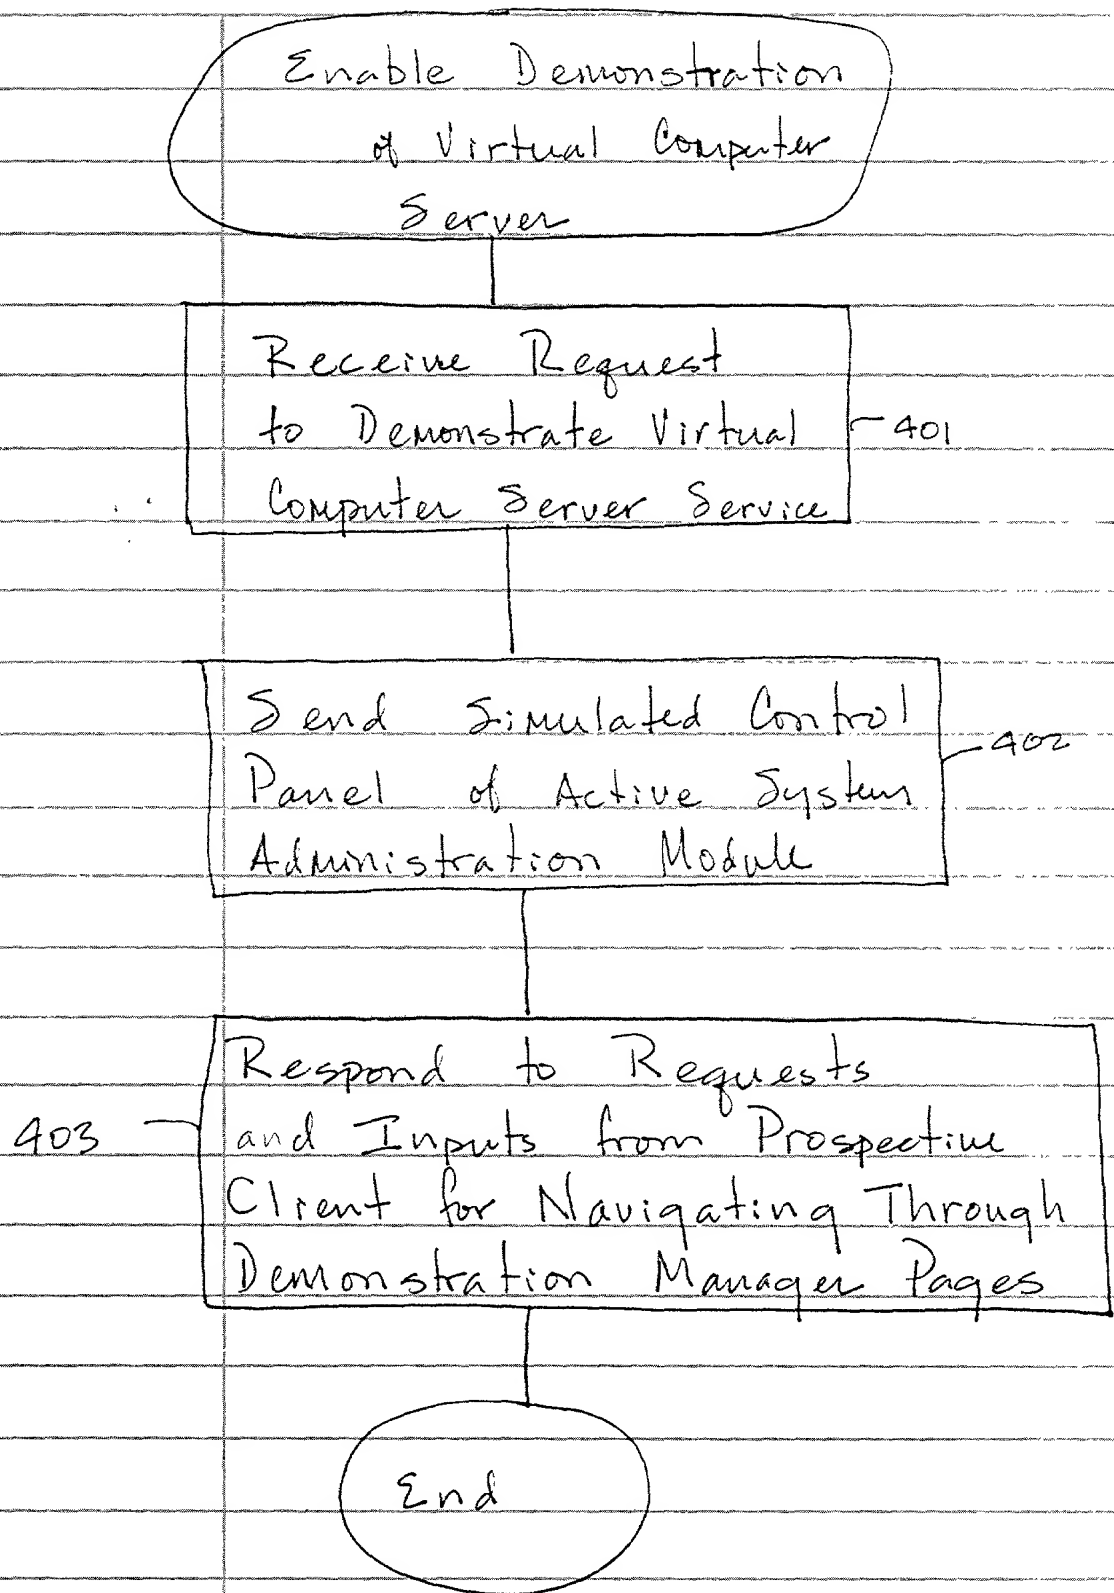 Enable Demonstration
of Virtual Computer
Server
Receive Request
to Demonstrate Virtual
Computer Server Service
401
Send Simulated Control
Panel of Active System
Administration Module
402
Respond to Requests
403
and Inputs from Prospective
Client for Navigating Through
Demonstration Manager Pages
End